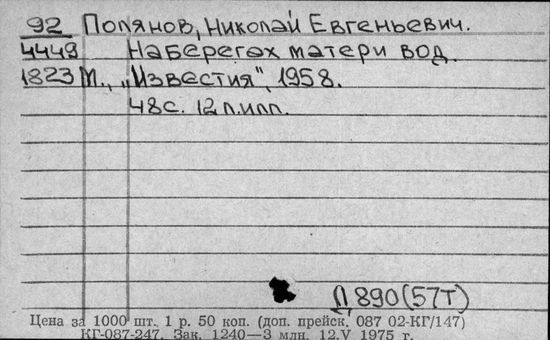 92 Полянов, Николай Евгеньевич.
4449 На берегах матери вод.
1823 М., „Известия", 1958.
48с. 12 л. илл.
Л 890(57Т)
Цена за 1000 шт. 1 р. 50 коп. (доп. прейск. 087 02-КГ/147)
КГ-087-247. Зак. 1240—3 млн. 12.V 1975 г.